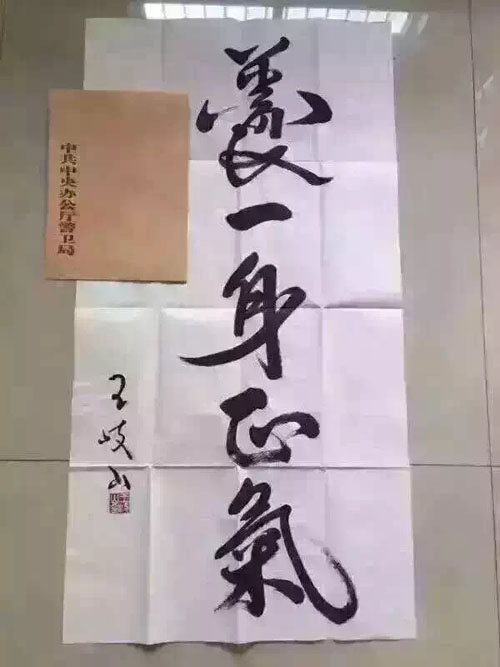 養一身正氣
王岐山
中共中央办公厅警卫局